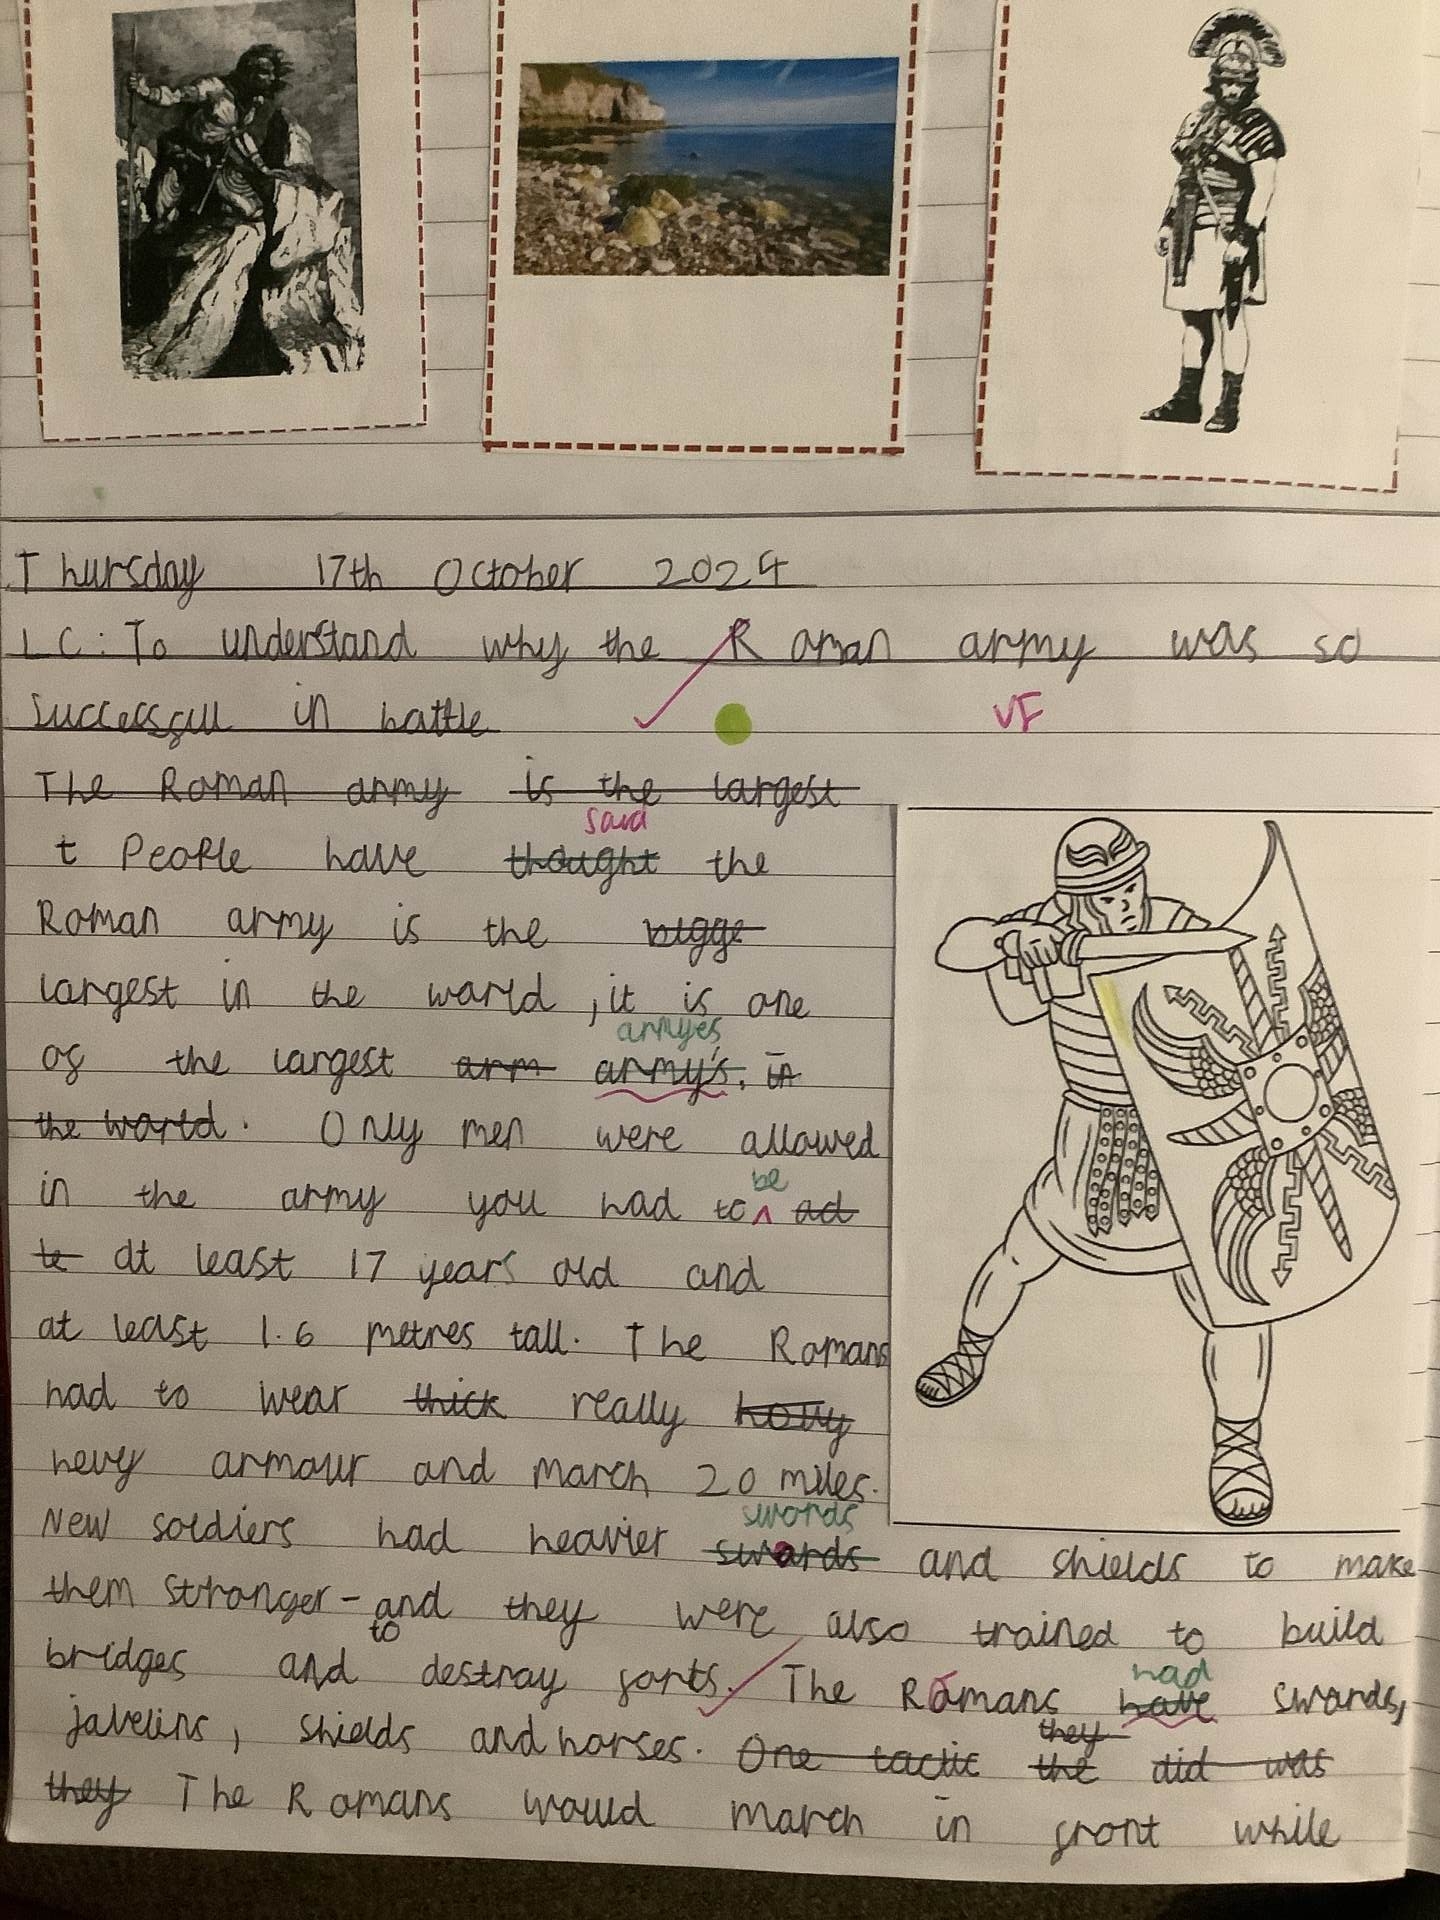 Thursday 17th October 2024
LC: To understand why the Roman army was so
successfull in battle
VF
The Roman army is the largest
said
t People have thought the
Roman army is the bigge
largest in the world, it is one
armyes
of the largest arm army's. in
the world. Only men were allowed
be
in the army you had to ^ ad
te at least 17 years old and
at least 1.6 metres tall. The Romans
had to wear thick really
hevy armour and march 20 miles.
swords
New soldiers had heavier swards and shields to make
them stronger - and they were also trained to build
to
bridges and destray forts. The Romans have swords,
had
javelins, shields and horses. One tactic the did was
they
they The Romans would march in front while